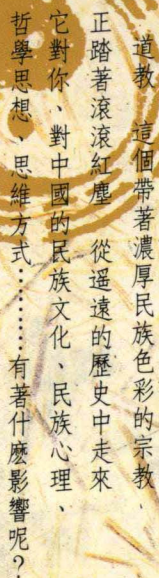 道教、這個帶著濃厚民族色彩的宗教、
正踏著滾滾紅塵 從遥遠的歷史中走來
它對你、對中國的民族文化、民族心理、
哲學思想、思維方式…………有著什麼影響呢?